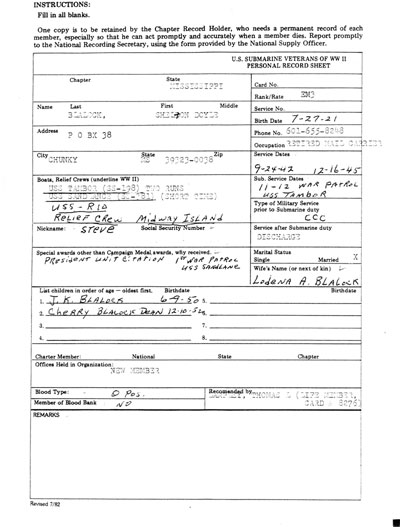 INSTRUCTIONS:
Fill in all blanks.
One copy is to be retained by the Chapter Record Holder, who needs a permanent record of each
member, especially so that he can act promptly and accurately when a member dies. Report promptly
to the National Recording Secretary, using the form provided by the National Supply Officer.
U.S. SUBMARINE VETERANS OF WW II
PERSONAL RECORD SHEET
Chapter State MISSISSIPPI Card No.
Rank/Rate EM3
Name Last First Middle Service No.
BLALOCK, DOYLE Birth Date 7-27-21
Address P O BX 38 Phone No. 601-655-8248
Occupation RETIRED MAIL CARRIER
City CHUNKY State MS 39323-0038 Zip Service Dates
9-24-42 12-16-45
Boats, Relief Crews (underline WW II) Sub. Service Dates
USS TAMBOR (SS-198) TWO RUNS 11-12 WAR PATROL
USS TAMBOR
USS - R10 Type of Military Service
prior to Submarine duty
Relief Crew Midway Island CCC
Nickname: - Steve Social Security Number - Service after Submarine duty
DISCHARGE
Special awards other than Campaign Medal awards, why received. - Marital Status
PRESIDENT UNIT CITATION 1st WAR PATROL Single Married X
USS SANDLANCE Wife's Name (or next of kin)
Lodena A. Blalock
List children in order of age — oldest first. Birthdate Birthdate
1. J.K. BLALOCK 6-9-50 5.
2. Cherry Blalock Dean 12-10-54 6.
3. 7.
4. 8.
Charter Member: National State Chapter
Offices Held in Organization:
NEW MEMBER
Blood Type: O Pos. Recomended by THOMAS (LIFE MEMBER,
Member of Blood Bank NO CARD
REMARKS
Revised 7/82